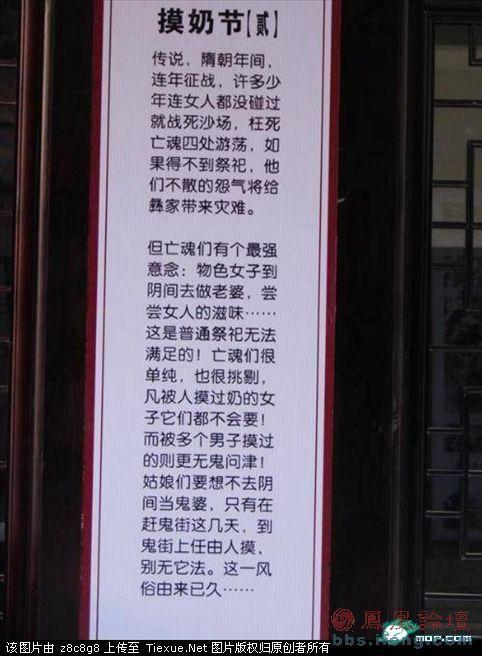 摸奶节【贰】
传说，隋朝年间，
连年征战，许多少
年连女人都没碰过
就战死沙场，枉死
亡魂四处游荡，如
果得不到祭祀，他
们不散的怨气将给
彝家带来灾难。
但亡魂们有个最强
意念：物色女子到
阴间去做老婆，尝
尝女人的滋味……
这是普通祭祀无法
满足的！亡魂们很
单纯，也很挑剔，
凡被人摸过奶的女
子它们都不会要！
而被多个男子摸过
的则更无鬼问津！
姑娘们要想不去阴
间当鬼婆，只有在
赶鬼街这几天，到
鬼街上任由人摸，
别无它法。这一风
俗由来已久……
鳳凰論壇
bbs.ifeng.com
mop.com
该图片由 z8c8g8 上传至 Tiexue.Net 图片版权归原创者所有